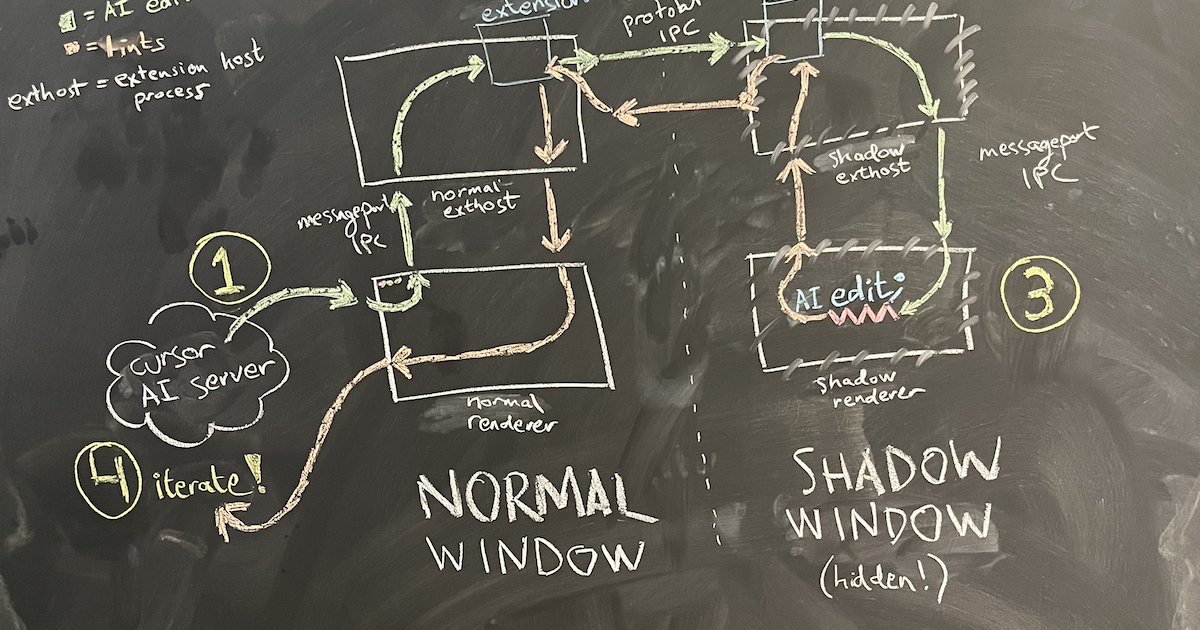 = AI edit
= lints
exthost = extension host
process
extension
IPC
messageport
IPC
normal
exthost
shadow
exthost
messageport
IPC
1
cursor
AI server
AI edit;
3
normal
renderer
shadow
renderer
4 iterate!
NORMAL
WINDOW
SHADOW
WINDOW
(hidden!)